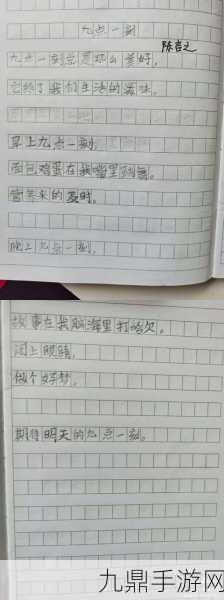 九点一刻
陈吉之
九点一刻总是那么美好，
它给了我们生活的美味。
早上九点一刻，
面包鸡蛋在我嘴里跳舞，
晚上九点一刻，
故事在我脑海里打哈欠。
闭上眼睛，
做个好梦，
期待明天的九点一刻。
九鼎手游网